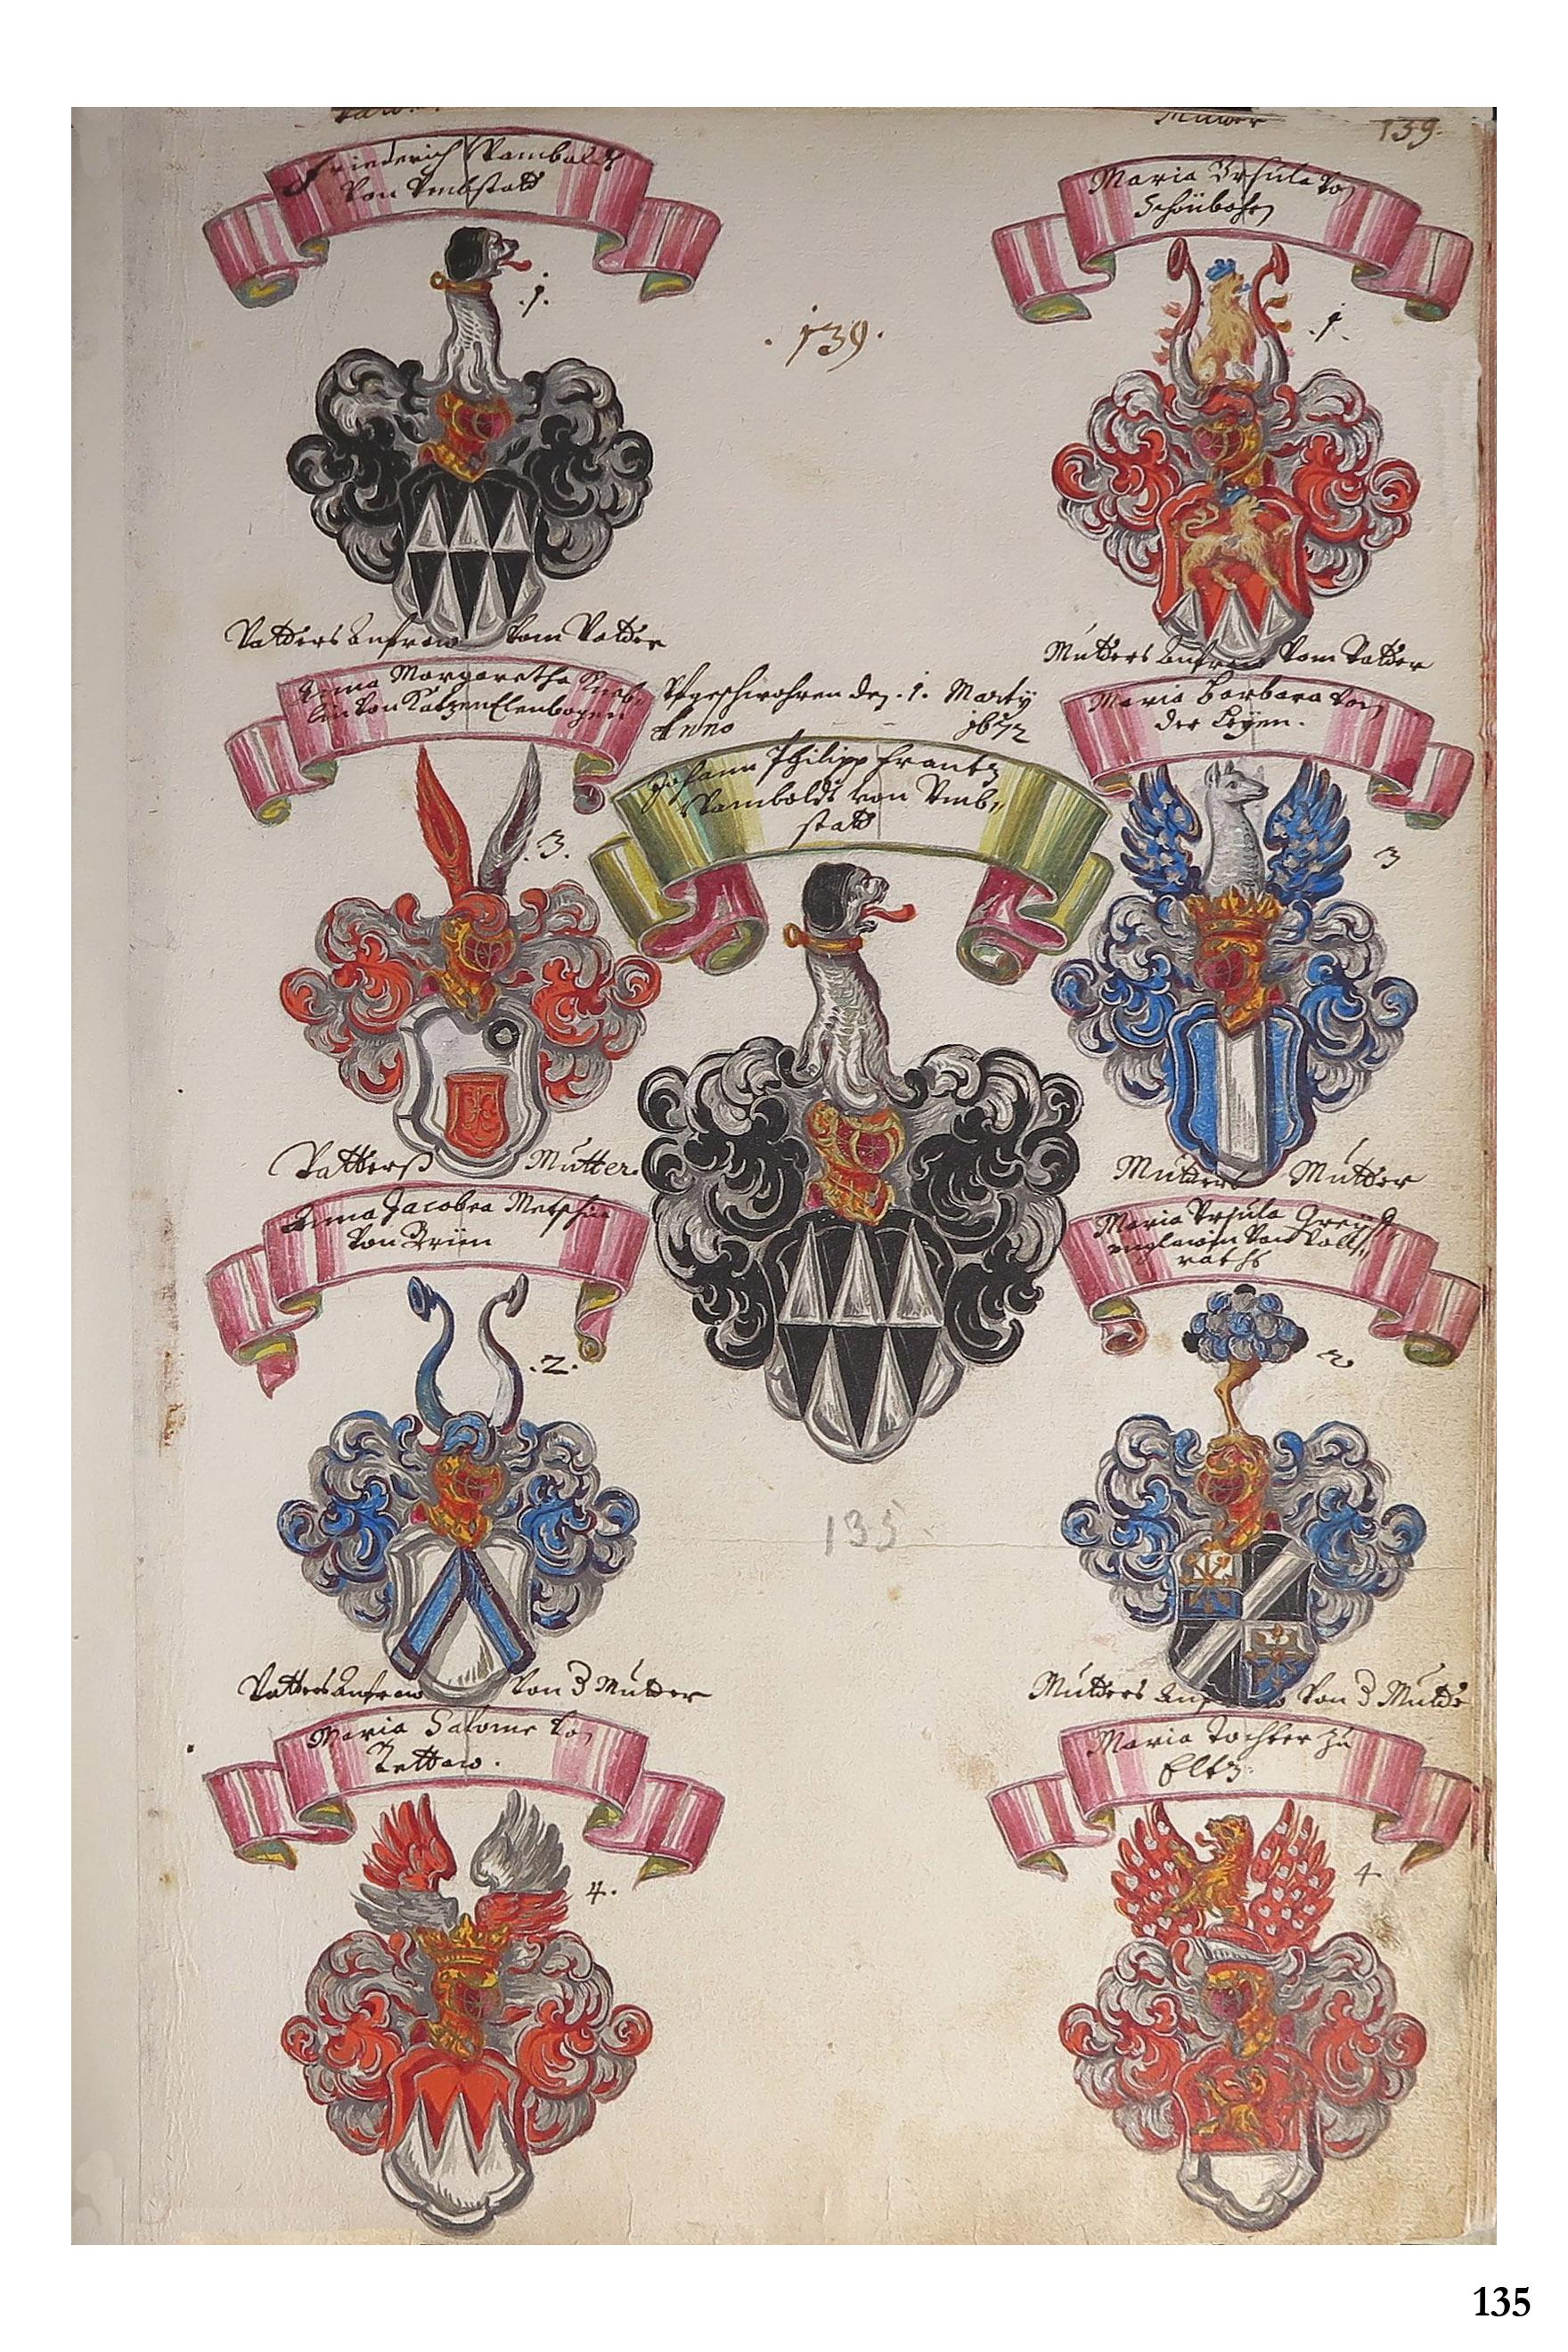 139.
Friederich Wamboldt
Von Vmbstatt
Maria Vrsula Von
Schönborn
.1.
.1.
.139.
Vatters Anfraw Vom Vatter
Mutters Anfraw Vom Vatter
Anna Margaretha Kneb-
lin Von KatzenElenbogen
Vffgeschwohren den .1. Marty
Anno 1672
Maria Barbara Von
der Leyen.
Johann Philipp Frantz
Wamboldt von Vmb-
statt
.3.
3
Vatters Mutter.
Mutters Mutter
Anna Jacobea
Von
Maria Vrsula Greiff-
Von Voll-
raths
.2.
2
135
Vatters Anfraw Von d Mutter
Mutters Anfraw Von d Mutter
Maria Salome Von
Tettaw.
Maria Tochter zu
Eltz.
4.
4
135